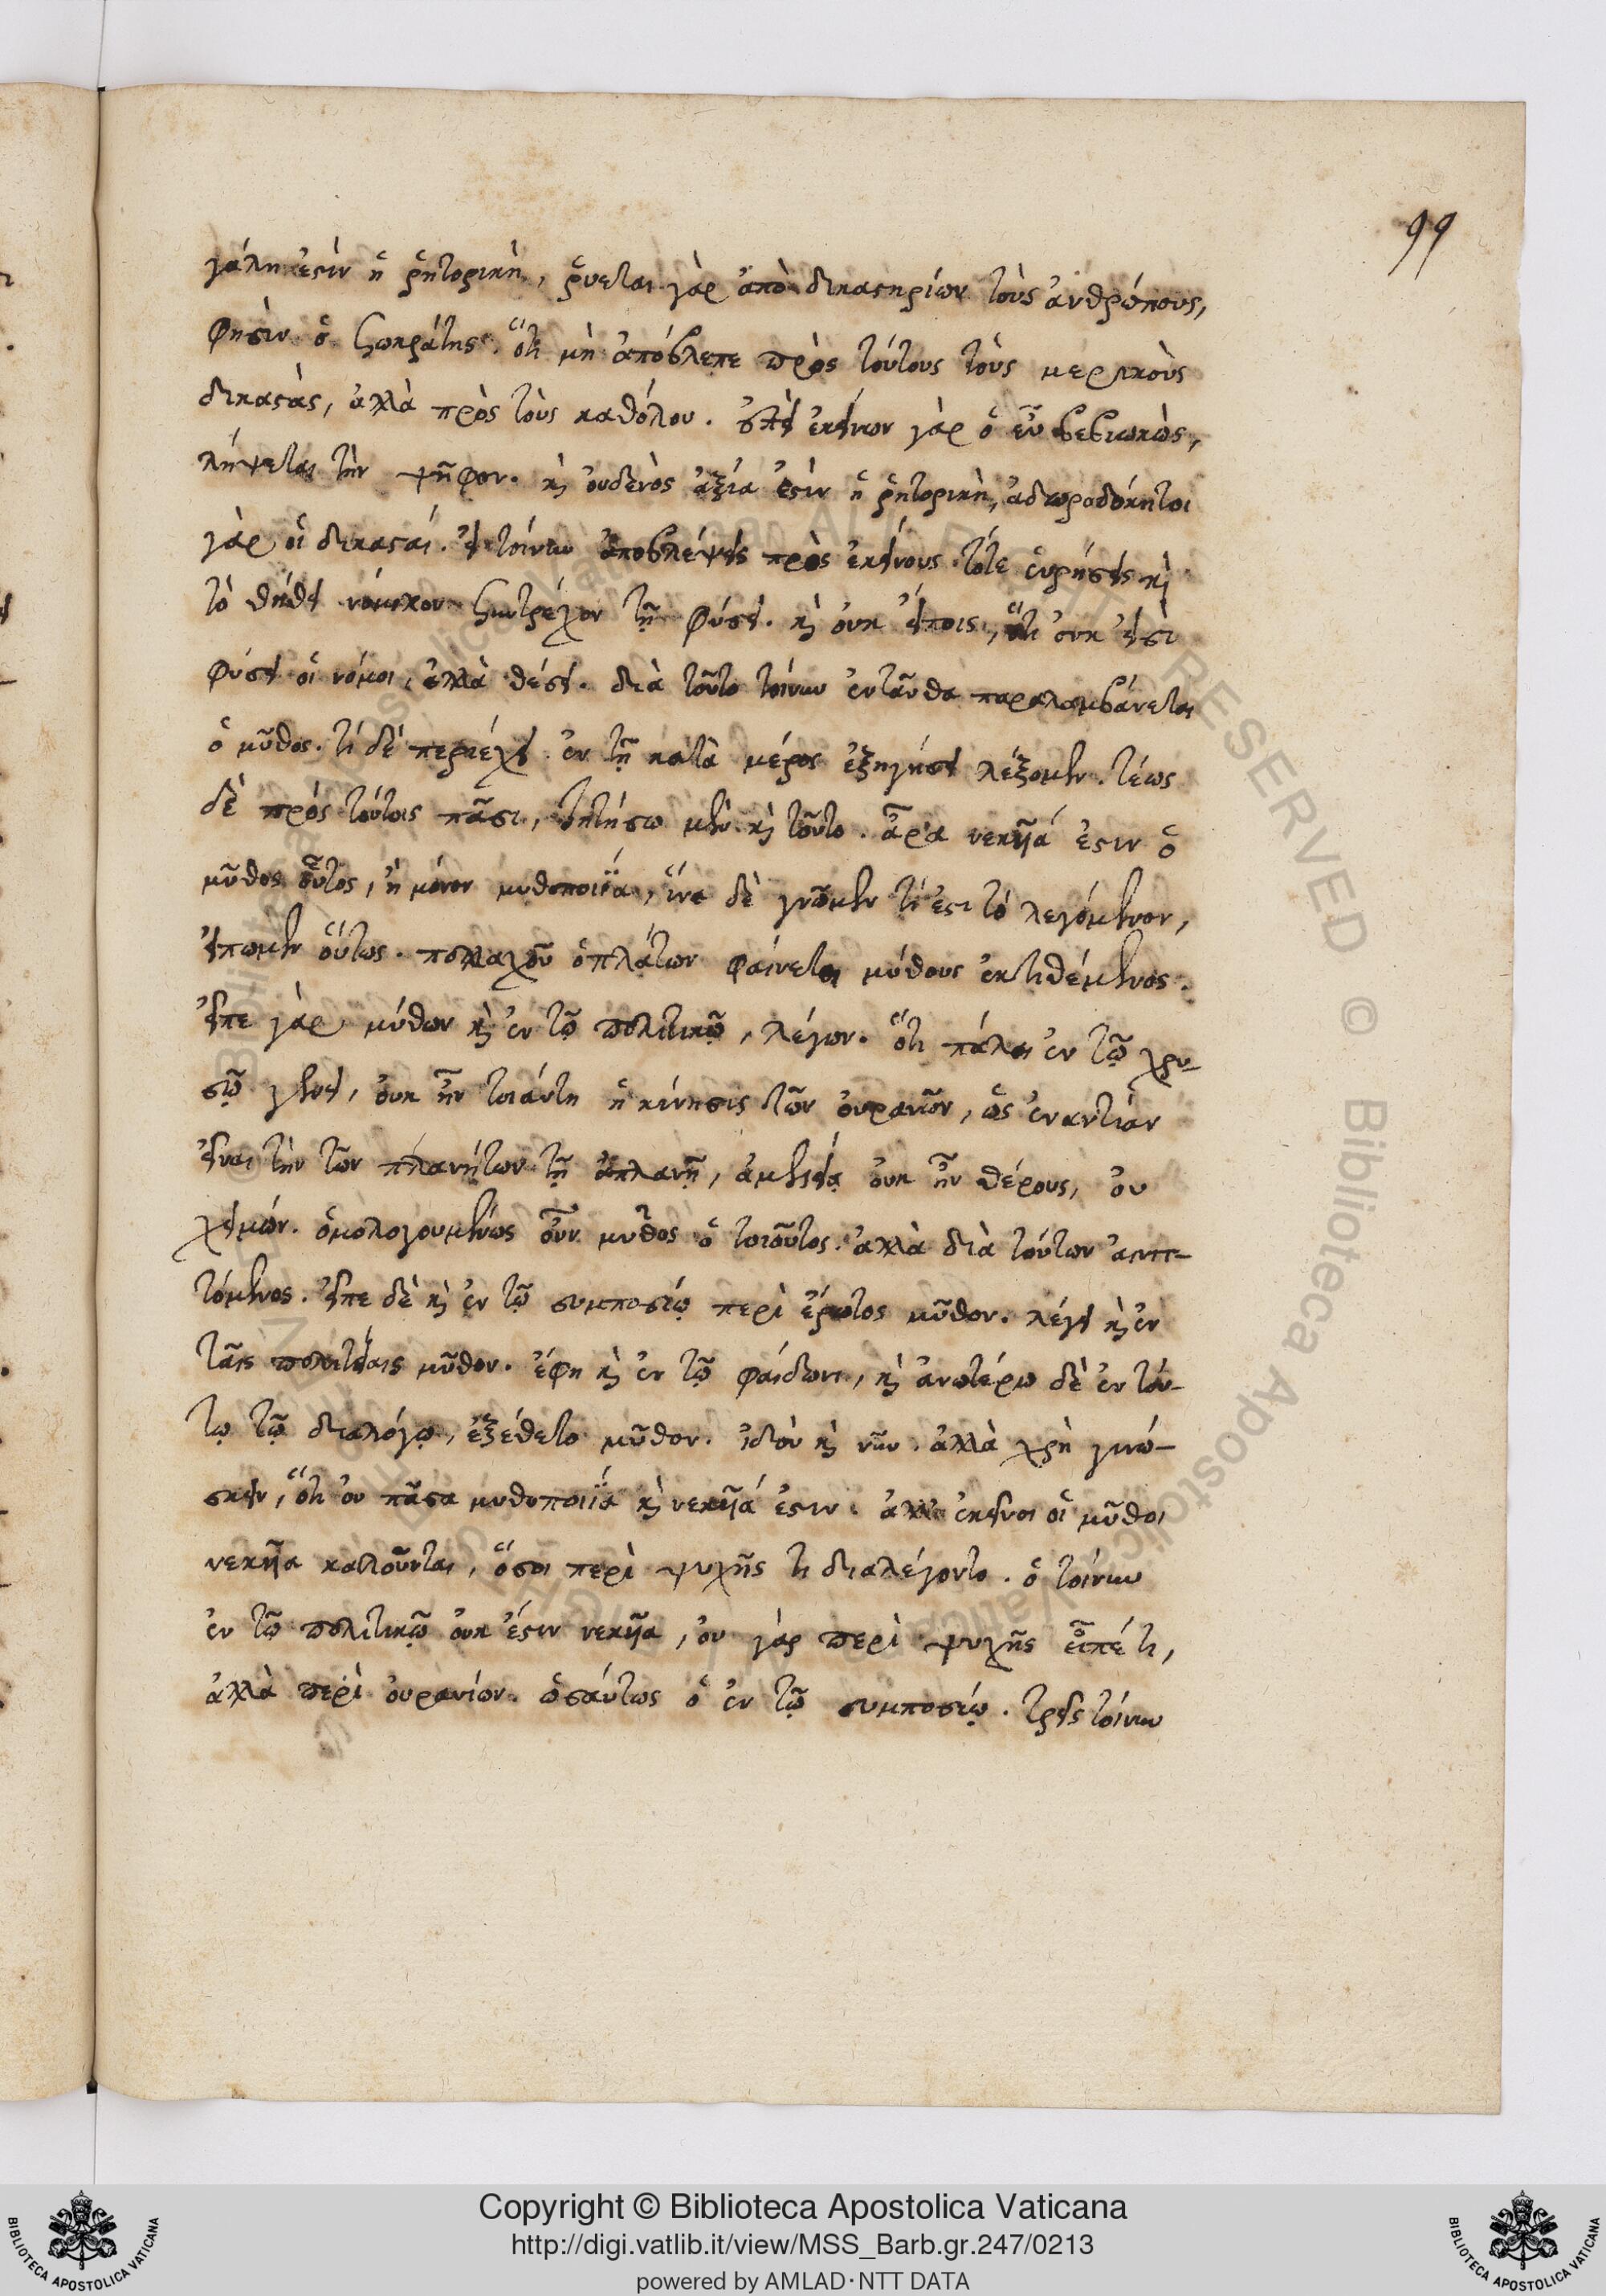 99
γάλη ἐστὶν ἡ ῥητορικὴ, ῥύεται γὰρ ἀπὸ δικαστηρίων τοὺς ἀνθρώπους,
φησὶν ὁ Σωκράτης. ὅτι μὴ ἀπόβλεπε πρὸς τούτους τοὺς μερικοὺς
δικαστὰς, ἀλλὰ πρὸς τοὺς καθόλου. ἐκείνων γὰρ ὁ εὖ βεβιωκὼς,
λήψεται τὴν ψῆφον. καὶ οὐδενὸς ἀξία ἐστὶν ἡ ῥητορικὴ, ἀδωροδόκητοι
γὰρ οἱ δικασταί. εἰ τοίνυν ἀποβλέψεις πρὸς ἐκείνους. τότε εὑρήσεις καὶ
τὸ νόμιμον συντρέχον τῇ φύσει. καὶ οὐκ εἴποις, ὅτι οὐκ εἰσὶ
φύσει οἱ νόμοι, ἀλλὰ θέσει. διὰ τοῦτο τοίνυν ἐνταῦθα παραλαμβάνεται
ὁ μῦθος. τί δὲ περιέχει. ἐν τῇ κατὰ μέρος ἐξηγήσει λέξομεν. τέως
δὲ πρὸς τούτοις πᾶσι, ζητήσω μὲν καὶ τοῦτο. ἆρα νεκυῖά ἐστιν ὁ
μῦθος οὗτος, ἢ μόνον μυθοποιΐα, ἵνα δὲ γνῶμεν τί ἐστι τὸ λεγόμενον,
εἴπωμεν οὕτως. πολλαχοῦ ὁ πλάτων φαίνεται μύθους ἐκτιθέμενος.
εἶπε γὰρ μῦθον καὶ ἐν τῷ πολιτικῷ, λέγων. ὅτι πάλαι ἐν τῷ χρυ-
σῷ γένει, οὐκ ἦν τοιάυτη ἡ κίνησις τῶν οὐρανίων, ὡς ἐναντίαν
εἶναι τὴν τῶν πλανήτων τῇ ἀπλανῇ, ἀμέλει οὐκ ἦν θέρους, οὐ
χειμών. ὁμολογουμένως οὖν μῦθος ὁ τοιοῦτος. ἀλλὰ διὰ τούτων αἰνιτ-
τόμενος. εἶπε δὲ καὶ ἐν τῷ συμποσίῳ περὶ ἔρωτος μῦθον. λέγει καὶ ἐν
ταῖς πολιτείαις μῦθον. ἔφη καὶ ἐν τῷ φαίδωνι, καὶ ἀνωτέρω δὲ ἐν τού-
τῳ τῷ διαλόγῳ, ἐξέθετο μῦθον. ἰδοὺ καὶ νῦν. ἀλλὰ χρὴ γινώ-
σκειν, ὅτι οὐ πᾶσα μυθοποιΐα καὶ νεκυῖά ἐστιν. ἀλλ' ἐκεῖνοι οἱ μῦθοι
νεκυῖα καλοῦνται, ὅσοι περὶ ψυχῆς τι διαλέγοντο. ὁ τοίνυν
ἐν τῷ πολιτικῷ οὐκ ἔστιν νεκυῖα, οὐ γὰρ περὶ ψυχῆς εἶπέ τι,
ἀλλὰ περὶ οὐρανίων. ὡσαύτως ὁ ἐν τῷ συμποσίῳ. τρεῖς τοίνυν
Copyright © Biblioteca Apostolica Vaticana
http://digi.vatlib.it/view/MSS_Barb.gr.247/0213
powered by AMLAD·NTT DATA
BIBLIOTECA APOSTOLICA VATICANA
BIBLIOTECA APOSTOLICA VATICANA